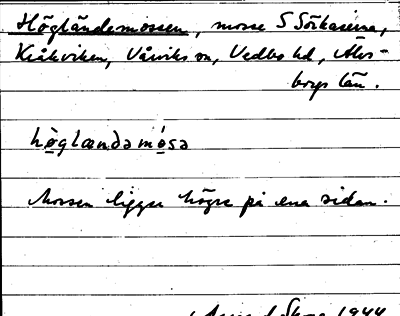 Höglandsmossen, mosse S Sörkaserna,
Kråkviken, Vårviks sn, Vedbo hd, Älvs-
borgs län.
höglandamósa
Mossen ligger högre på ena sidan.
1944